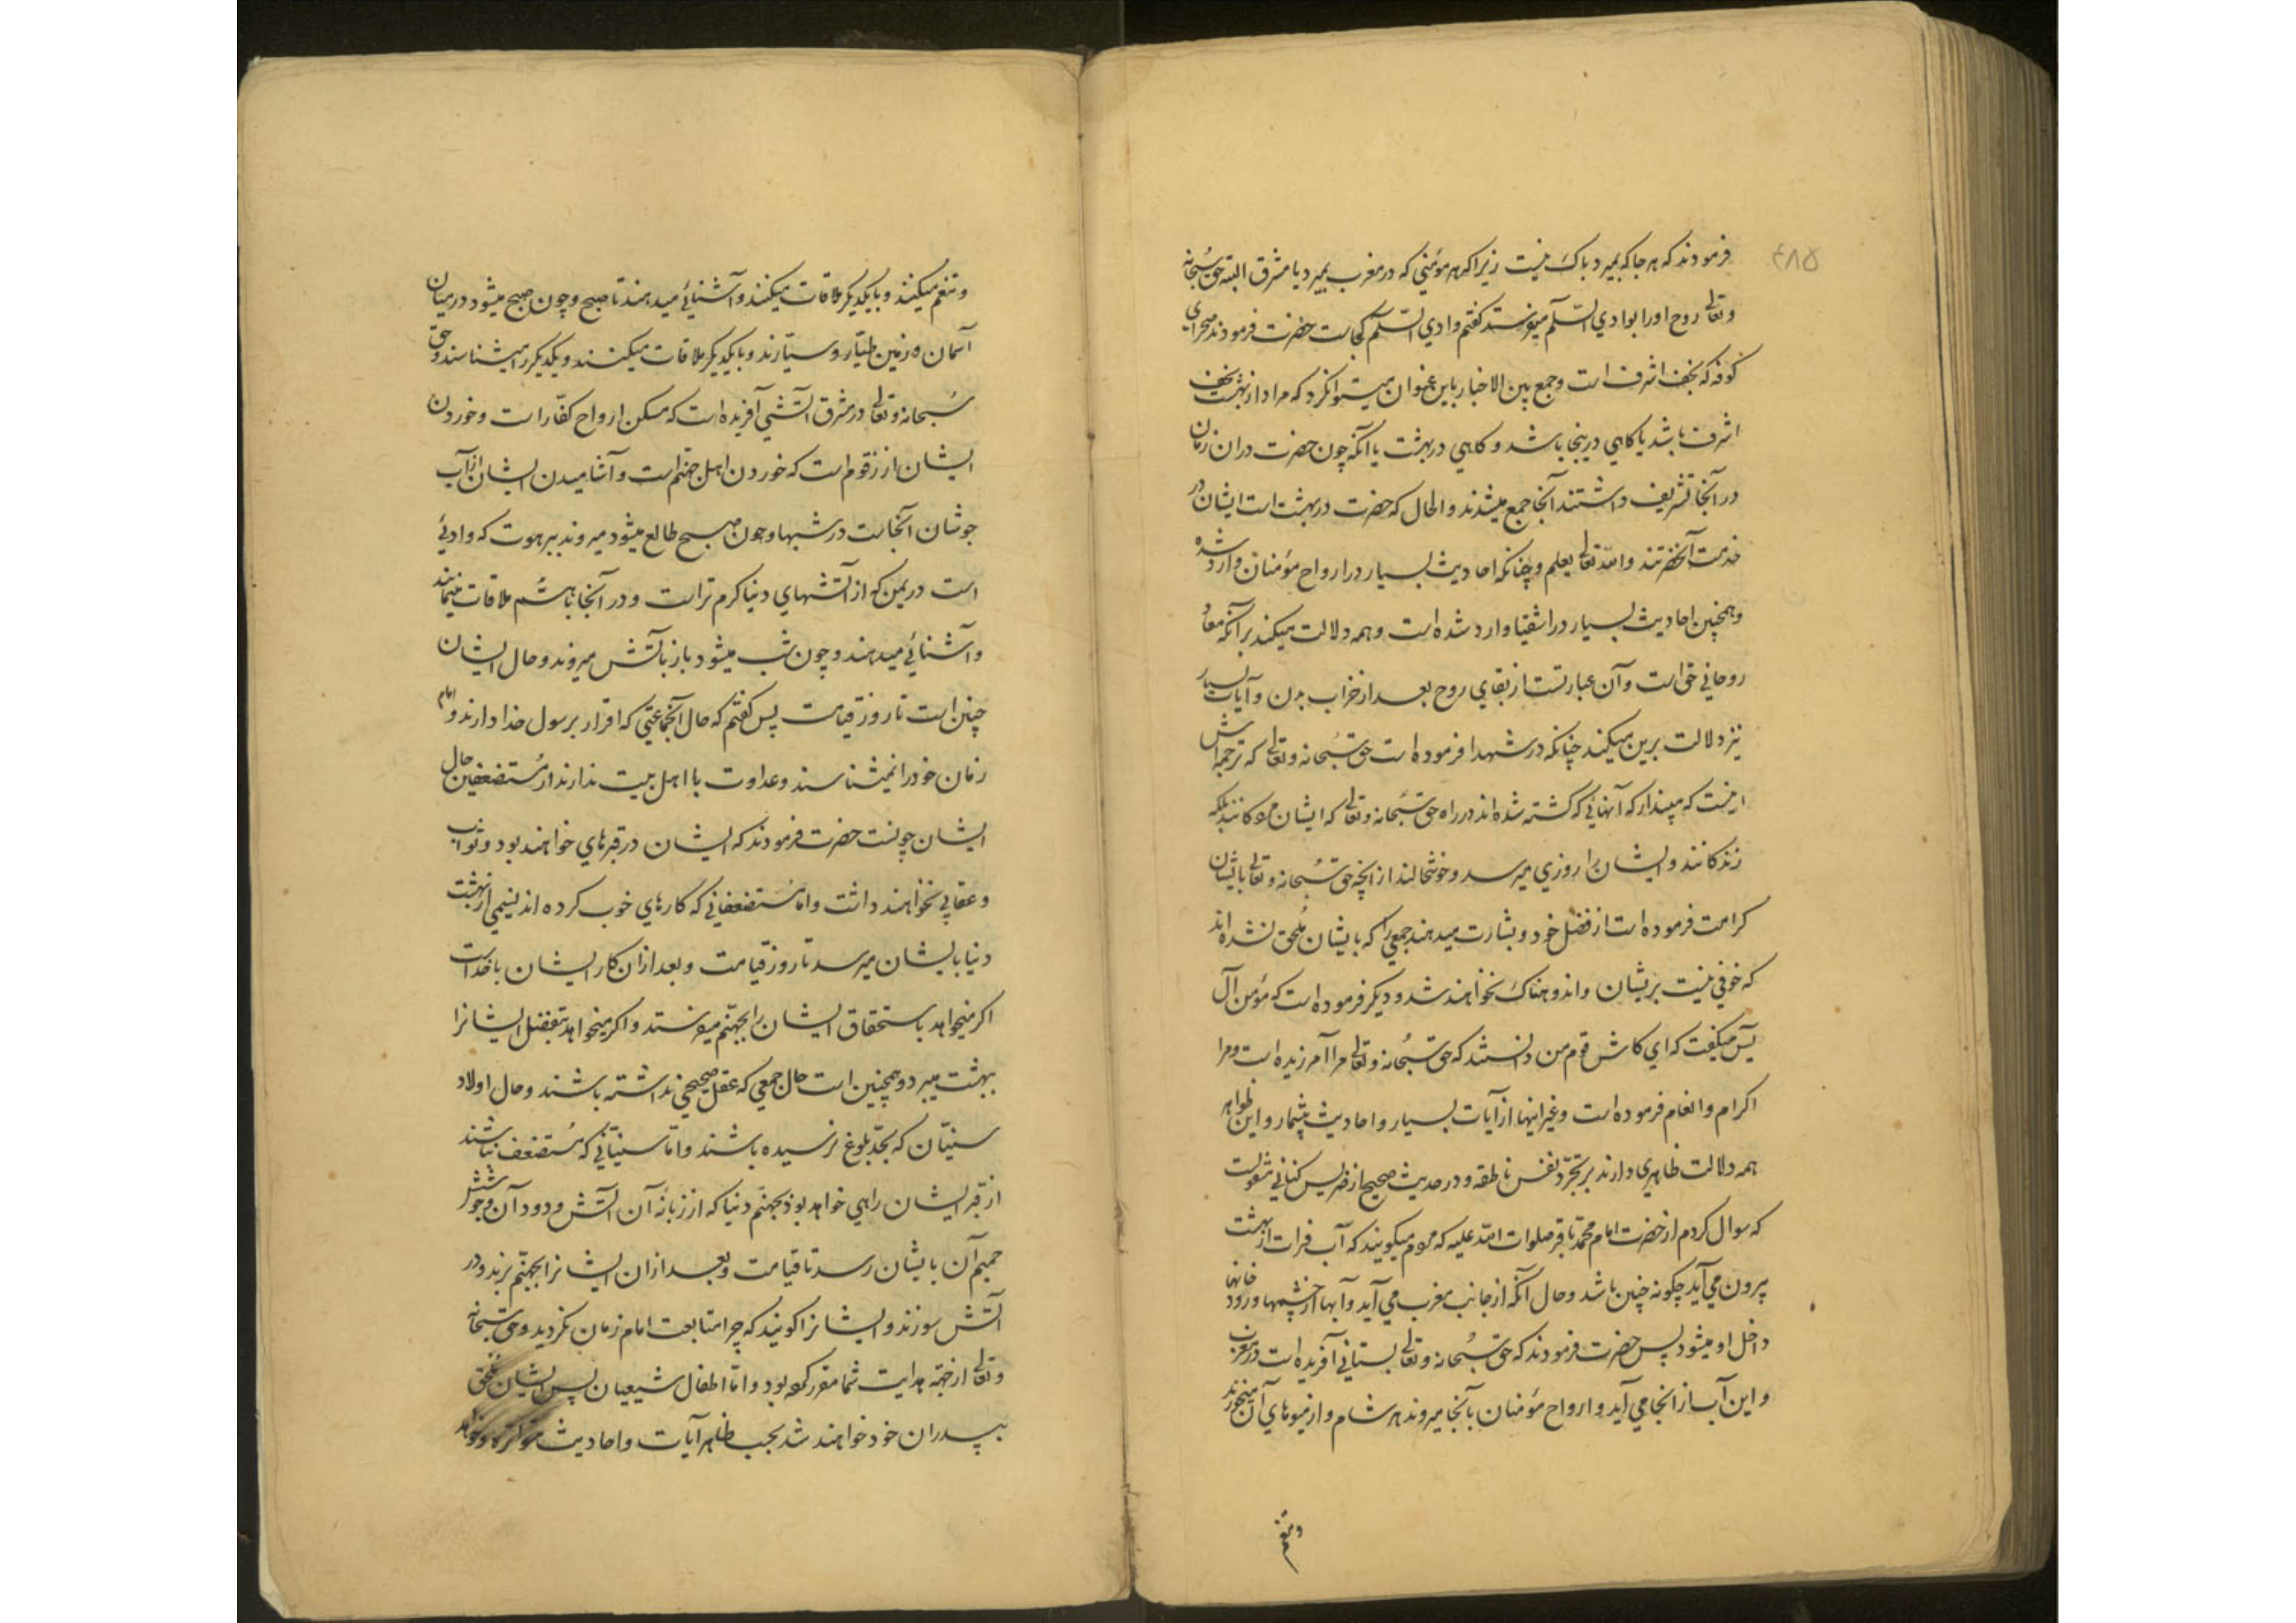 ۴۸۵
فرمودند که هر جا که بمیرد باک نیست زیرا که هر مؤمنی که در مغرب بمیرد یا مشرق البته حق سُبحانه
وتعالی روح او را بوادي السّلم میفرستد کفتم وادي السّلم کجاست حضرت فرمودند صحرای
کوفه که نجف اشرف است وجمع بین الاخبار باین عنوان میتوانکرد که مراد از بهشت نجف
اشرف باشد یا کاهي درینجا باشد و کاهي در بهشت یا آنکه چون حضرت دران زمان
در آنجا تشریف داشتند آنجا جمع میشدند و الحال که حضرت در بهشت است ایشان در
خدمت آنحضرتند والله تعالی یعلم وچنانکه احادیث بسیار در ارواح مؤمنان وارد شده
وهمچنین احادیث بسیار در اشقیا وارد شده است وهمه دلالت میکند بر آنکه معاد
روحاني حق است وآن عبارتست از بقاي روح بعد از خراب بدن وآیات بسیار
نیز دلالت برین میکند چنانکه در شهدا فرموده است حق سُبحانه وتعالی که ترجمه اش
اینست که مپندار که آنهائي که کشته شده اند در راه حق سُبحانه وتعالی که ایشان مردکانند بلکه
زندکانند و ایشان را روزي میرسد و خوشحالند از انچه حق سُبحانه وتعالی بایشان
کرامت فرموده است از فضل خود و بشارت میدهند جمعي را که بایشان مُلحق نشده اند
که خوفي نیست بریشان و اندوهناک نخواهند شد و دیکر فرموده است که مؤمن آل
یس میکفت که اي کاش قوم من دانستند که حق سُبحانه وتعالی مرا آمرزیده است ومرا
اکرام وانعام فرموده است وغیر اینها از آیات بسیار و احادیث بیشمار و این ظواهر
همه دلالت ظاهري دارند بر تجرّد نفس ناطقه و در حدیث صحیح از ضریس کناني منقولست
که سوال کردم از حضرت امام محمّد باقر صلوات الله علیه که مردم میکویند که آب فرات از بهشت
بیرون مي آید چکونه چنین باشد وحال آنکه از جانب مغرب مي آید و آبها از چشمها ورودخانها
داخل او میشود پس حضرت فرمودند که حق سُبحانه وتعالی بستاني آفریده است در مغرب
و این آب از انجا مي آید و ارواح مؤمنان بآنجا میروند هر شام و از میوهاي آن میخورند
وتنعم
وتنعم میکنند و با یکدیکر ملاقات میکنند و آشنائي میدهند تا صبح و چون صبح میشود در میان
آسمان وزمین طیّار وسیّارند و با یکدیکر ملاقات میکنند و یکدیکر را میشناسند وحق
سُبحانه وتعالی در مشرق آتشي آفریده است که مسکن ارواح کفّار است وخوردن
ایشان از زقوم است که خوردن اهل جهنم است وآشامیدن ایشان از آب
جوشان آنجاست در شبها و چون صبح طالع میشود میروند ببرهوت که وادئي
است در یمن که از آتشهاي دنیا کرم تر است و در آنجا باهم ملاقات مینمایند
وآشنائي میدهند و چون شب میشود باز بآتش میروند وحال ایشان
چنین است تا روز قیامت پس کفتم که حال آنجماعتي که اقرار برسول خدا دارند و امام
زمان خود را نمیشناسند وعداوت با اهل بیت ندارند از مُستضعفین حال
ایشان چونست حضرت فرمودند که ایشان در قبرهاي خواهند بود وثواب
وعقابي نخواهند داشت و اما مُستضعفاني که کارهاي خوب کرده اند نسیمي از بهشت
دنیا بایشان میرسد تا روز قیامت و بعد از ان کار ایشان باخداست
اکر میخواهد باستحقاق ایشان را بجهنم میفرستد و اکر میخواهد بتفضل ایشانرا
ببهشت میبرد و همچنین است حال جمعي که عقل صحیحي نداشته باشند وحال اولاد
سنیّان که بحدّ بلوغ نرسیده باشند وامّا سنیّاني که مُستضعف نباشند
از قبر ایشان راهي خواهد بود بجهنّم دنیا که از زبانه آن آتش ودود آن وجوشش
حمیم آن بایشان رسد تا قیامت و بعد از ان ایشانرا بجهنّم برند و در
آتش سوزند و ایشانرا کویند که چرا متابعت امام زمان نکردید وحق سُبحانه
وتعالی از جهة هدایت شما مقرر کرده بود و امّا اطفال شیعیان پس ایشان ملحق
بپدران خود خواهند شد بحسب ظاهر آیات و احادیث متواتره